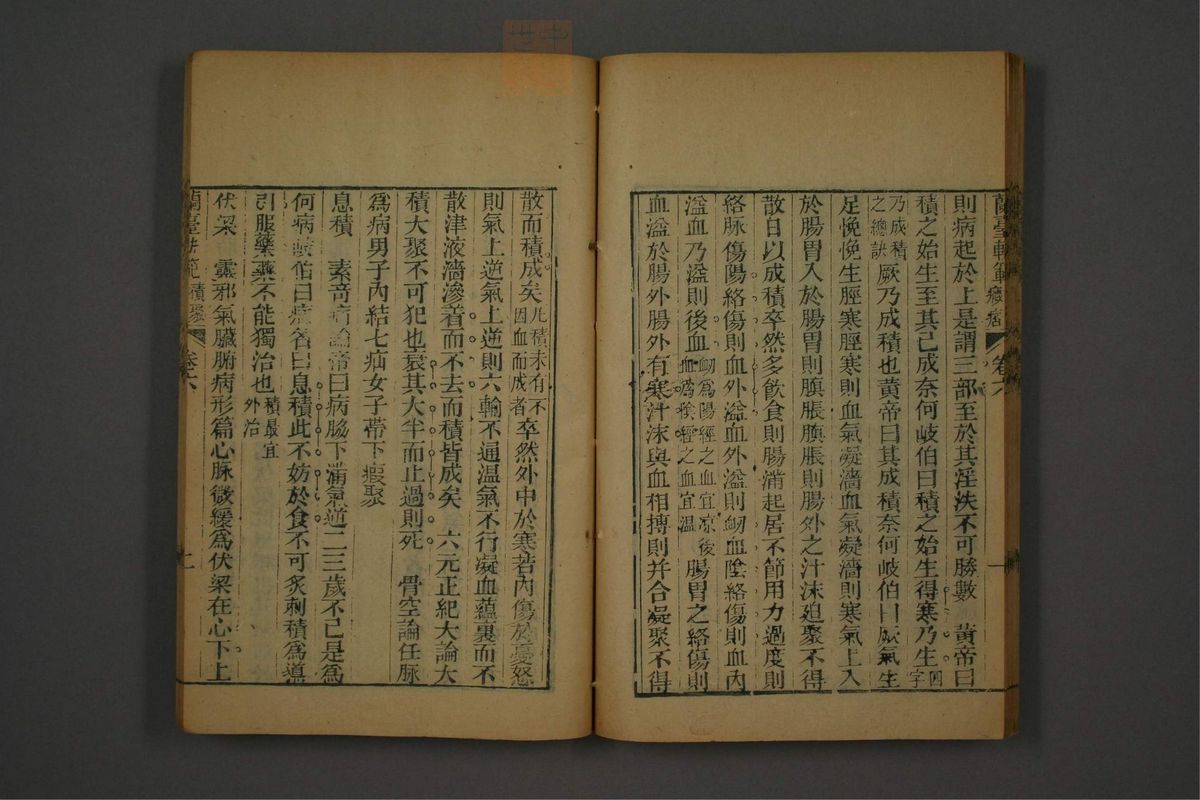 蘭臺軌範 癥瘕 卷六 一
則病起於上是謂三部至於其淫泆不可勝數 黃帝曰
積之始生至其已成奈何岐伯曰積之始生得寒乃生四字
乃成積之總訣厥乃成積也黃帝曰其成積奈何岐伯曰厥氣生
足悗悗生脛寒脛寒則血氣凝濇血氣凝濇則寒氣上入
於腸胃入於腸胃則䐜脹䐜脹則腸外之汁沫迫聚不得
散日以成積卒然多飲食則腸滿起居不節用力過度則
絡脉傷陽絡傷則血外溢血外溢則衄血陰絡傷則血內
溢血乃溢則後血衄爲陽經之血宜凉後血爲陰經之血宜溫腸胃之絡傷則
血溢於腸外腸外有寒汁沫與血相搏則并合凝聚不得
散而積成矣凡積未有不因血而成者卒然外中於寒若內傷於憂怒
則氣上逆氣上逆則六輸不通溫氣不行凝血蘊裏而不
散津液濇滲著而不去而積皆成矣 六元正紀大論大
積大聚不可犯也衰其大半而止過則死 骨空論任脉
爲病男子內結七疝女子帶下瘕聚
息積 素奇病論帝曰病脇下滿氣逆二三歲不已是爲
何病岐伯曰病名曰息積此不妨於食不可灸刺積爲導
引服藥藥不能獨治也積最宜外治
伏梁 靈邪氣臟腑病形篇心脉微緩爲伏梁在心下上
蘭臺軌範 積聚 卷六